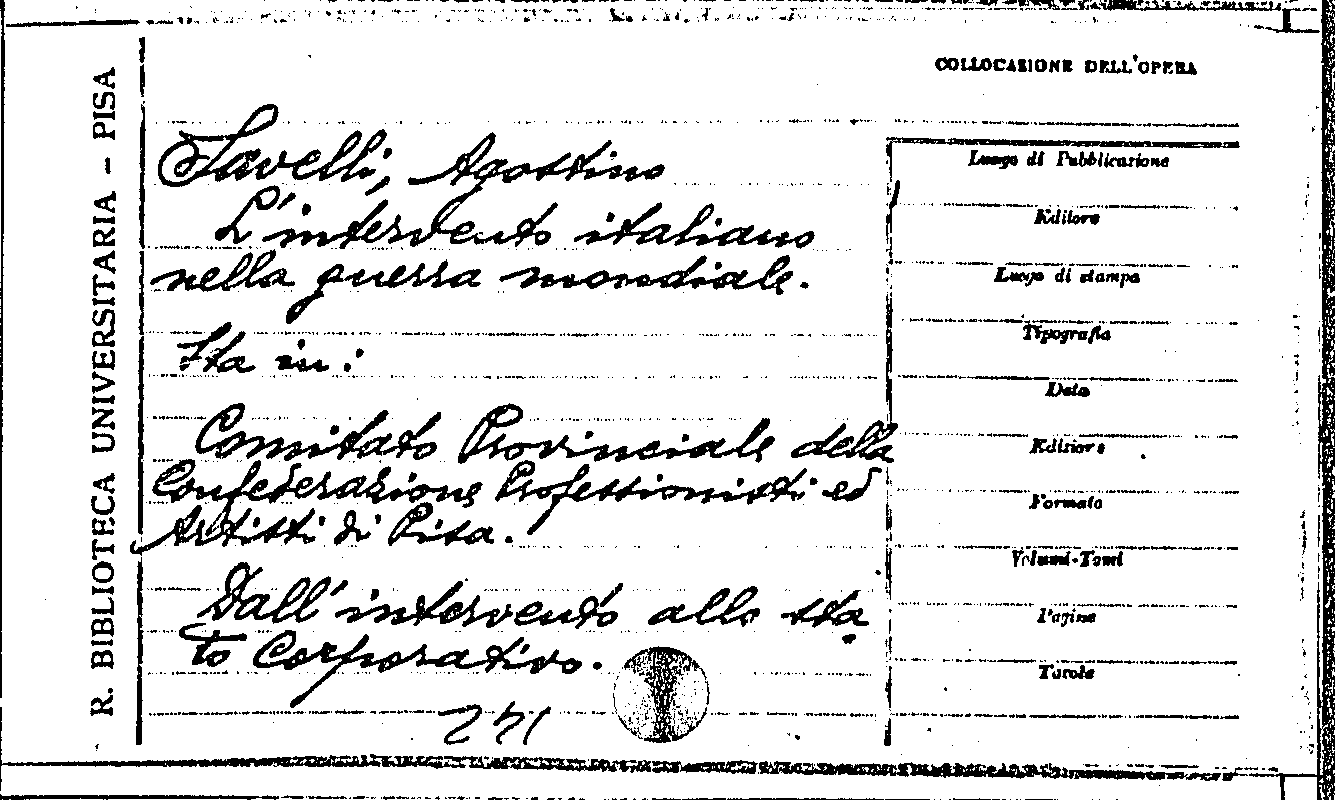 R. BIBLIOTECA UNIVERSITARIA - PISA
COLLOCAZIONE DELL'OPERA
Savelli, Agostino
L'intervento italiano
nella guerra mondiale.
Sta in:
Comitato Provinciale della
Confederazione Professionisti ed
Artisti di Pisa.
Dall'intervento allo sta
to Corporativo.
Luogo di Pubblicazione
Editore
Luogo di stampa
Tipografia
Data
Edizione
Formato
Volumi-Tomi
Pagine
Tavole